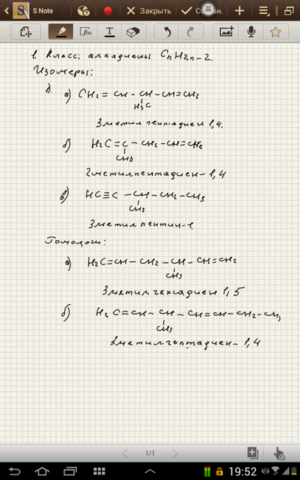 S Note
Закрыть
1. Класс: алкадиены CnH2n-2.
Изомеры:
а) CH2 = CH - CH - CH = CH2
H3C
3 метил пентадиен 1,4.
б) H2C = C - CH2 - CH = CH2
CH3
2 метилпентадиен - 1,4
в) HC ≡ C - CH - CH2 - CH3
CH3
3 метил пентин - 1
Гомологи:
а) H2C = CH - CH2 - CH - CH = CH2
CH3
3 метил гексадиен 1,5
б) H2C = CH - CH - CH = CH - CH2 - CH3
CH3
3 метил гептадиен - 1,4
1/1
19:52